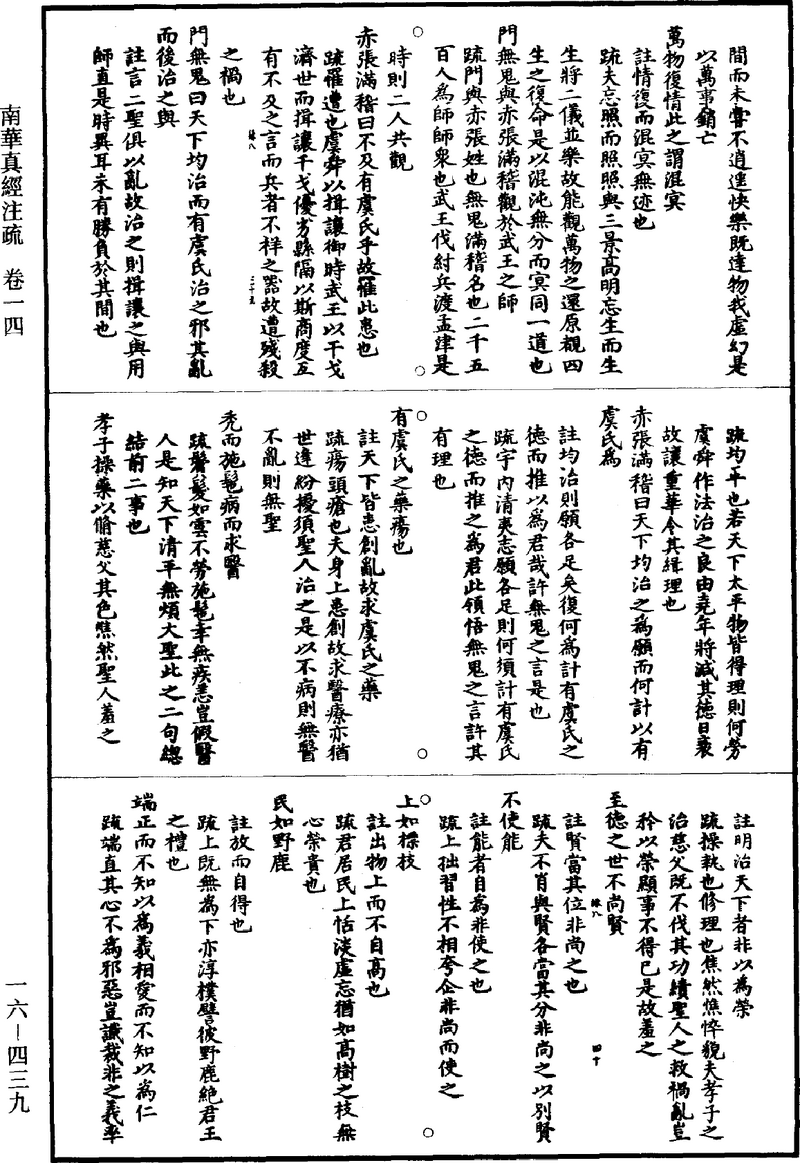 南華真經注疏 卷一四
一六-四三九
間而未嘗不逍遥快樂既達物我虛幻是
以萬事銷亡
萬物復情此之謂混冥
註情復而混冥無迹也
疏夫忘照而照照與三景高明忘生而生
生將二儀並樂故能觀萬物之還原覩四
生之復命是以混沌無分而冥同一道也
門無鬼與赤張滿稽觀於武王之師
疏門與赤張姓也無鬼滿稽名也二千五
百人為師師衆也武王伐紂兵渡孟津是
時則二人共觀
赤張滿稽曰不及有虞氏乎故罹此患也
疏罹遭也虞舜以揖讓御時武王以干戈
濟世而揖讓干戈優劣懸隔以斯商度至
有不及之言而兵者不祥之器故遭殘殺
之禍也
門無鬼曰天下均治而有虞氏治之邪其亂
而後治之與
註言二聖俱以亂故治之則揖讓之與用
師直是時異耳未有勝負於其間也
疏均平也若天下太平物皆得理則何勞
虞舜作法治之良由堯年將減其德日衰
故讓重華令其緝理也
赤張滿稽曰天下均治之為願而何計以有
虞氏為
註均治則願各足矣復何為計有虞氏之
德而推以為君哉許無鬼之言是也
疏宇內清夷志願各足則何須計有虞氏
之德而推之為君此領悟無鬼之言許其
有理也
有虞氏之藥瘍也
註天下皆患創亂故求虞氏之藥
疏瘍頭瘡也夫身上患創故求醫療亦猶
世逢紛擾須聖人治之是以不病則無醫
不亂則無聖
禿而施髢病而求醫
疏鬢髮如雲不勞施髢幸無疾恙豈假醫
人是知天下清平無煩大聖此之二句總
結前二事也
孝子操藥以脩慈父其色燋然聖人羞之
註明治天下者非以為榮
疏操執也修理也燋然燋悴貌夫孝子之
治慈父既不伐其功績聖人之救禍亂豈
矜以榮顯事不得已是故羞之
至德之世不尚賢
註賢當其位非尚之也
疏夫不肖與賢各當其分非尚之以別賢
不使能
註能者自為非使之也
疏上拙習性不相夸企非尚而使之
上如標枝
註出物上而不自高也
疏君居民上恬淡虛忘猶如高樹之枝無
心榮貴也
民如野鹿
註放而自得也
疏上既無為下亦淳樸譬彼野鹿絕君王
之禮也
端正而不知以為義相愛而不知以為仁
疏端直其心不為邪惡豈識裁非之義率